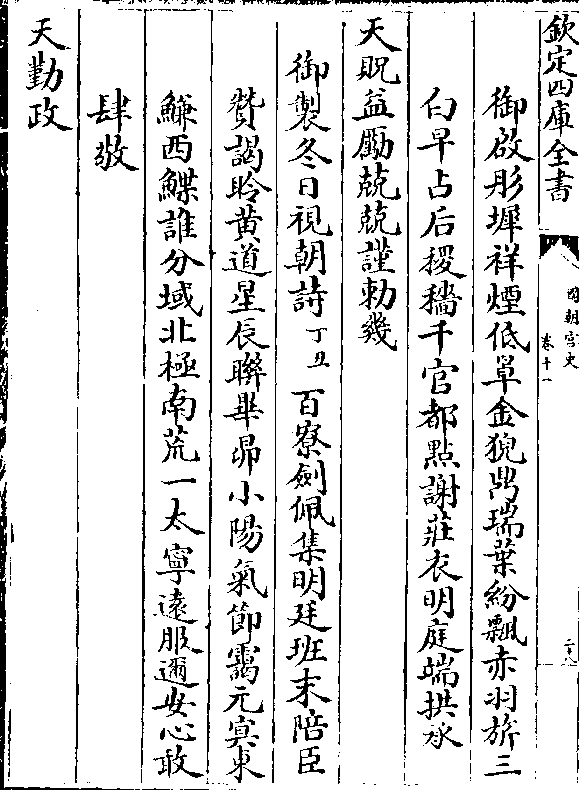 欽定四庫全書
國朝宮史
卷十一
二十八
御啟彤墀祥煙低罩金猊鼎瑞葉紛飄赤羽旂三
白早占后稷穡千官都點謝莊衣明庭端拱承
天貺益勵兢兢謹勅幾
御製冬日視朝詩丁丑百寮劍佩集明廷班末陪臣
贊謁聆黄道星辰聯畢昴小陽氣節靄元冥東
鰜西鰈誰分域北極南荒一太寧遠服邇安心敢
肆敬
天勤政